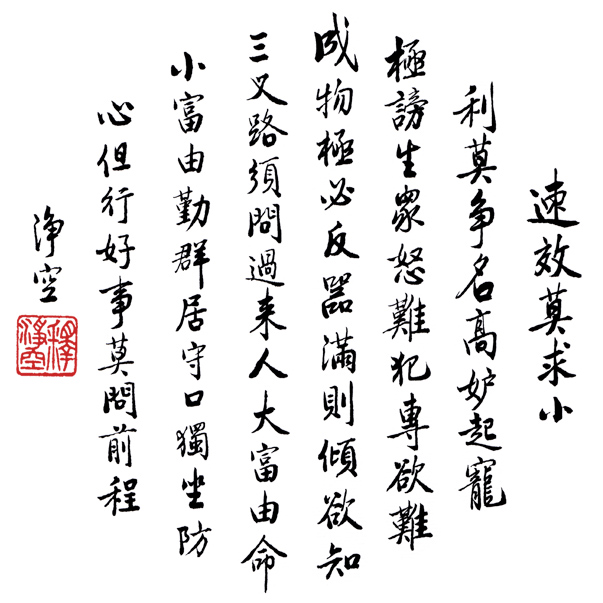 速效莫求小
利莫争名高妒起寵
極謗生眾怒難犯專欲難
成物極必反器滿則傾欲知
三叉路須問過来人大富由命
小富由勤群居守口獨坐防
心但行好事莫問前程
淨空
釋淨空